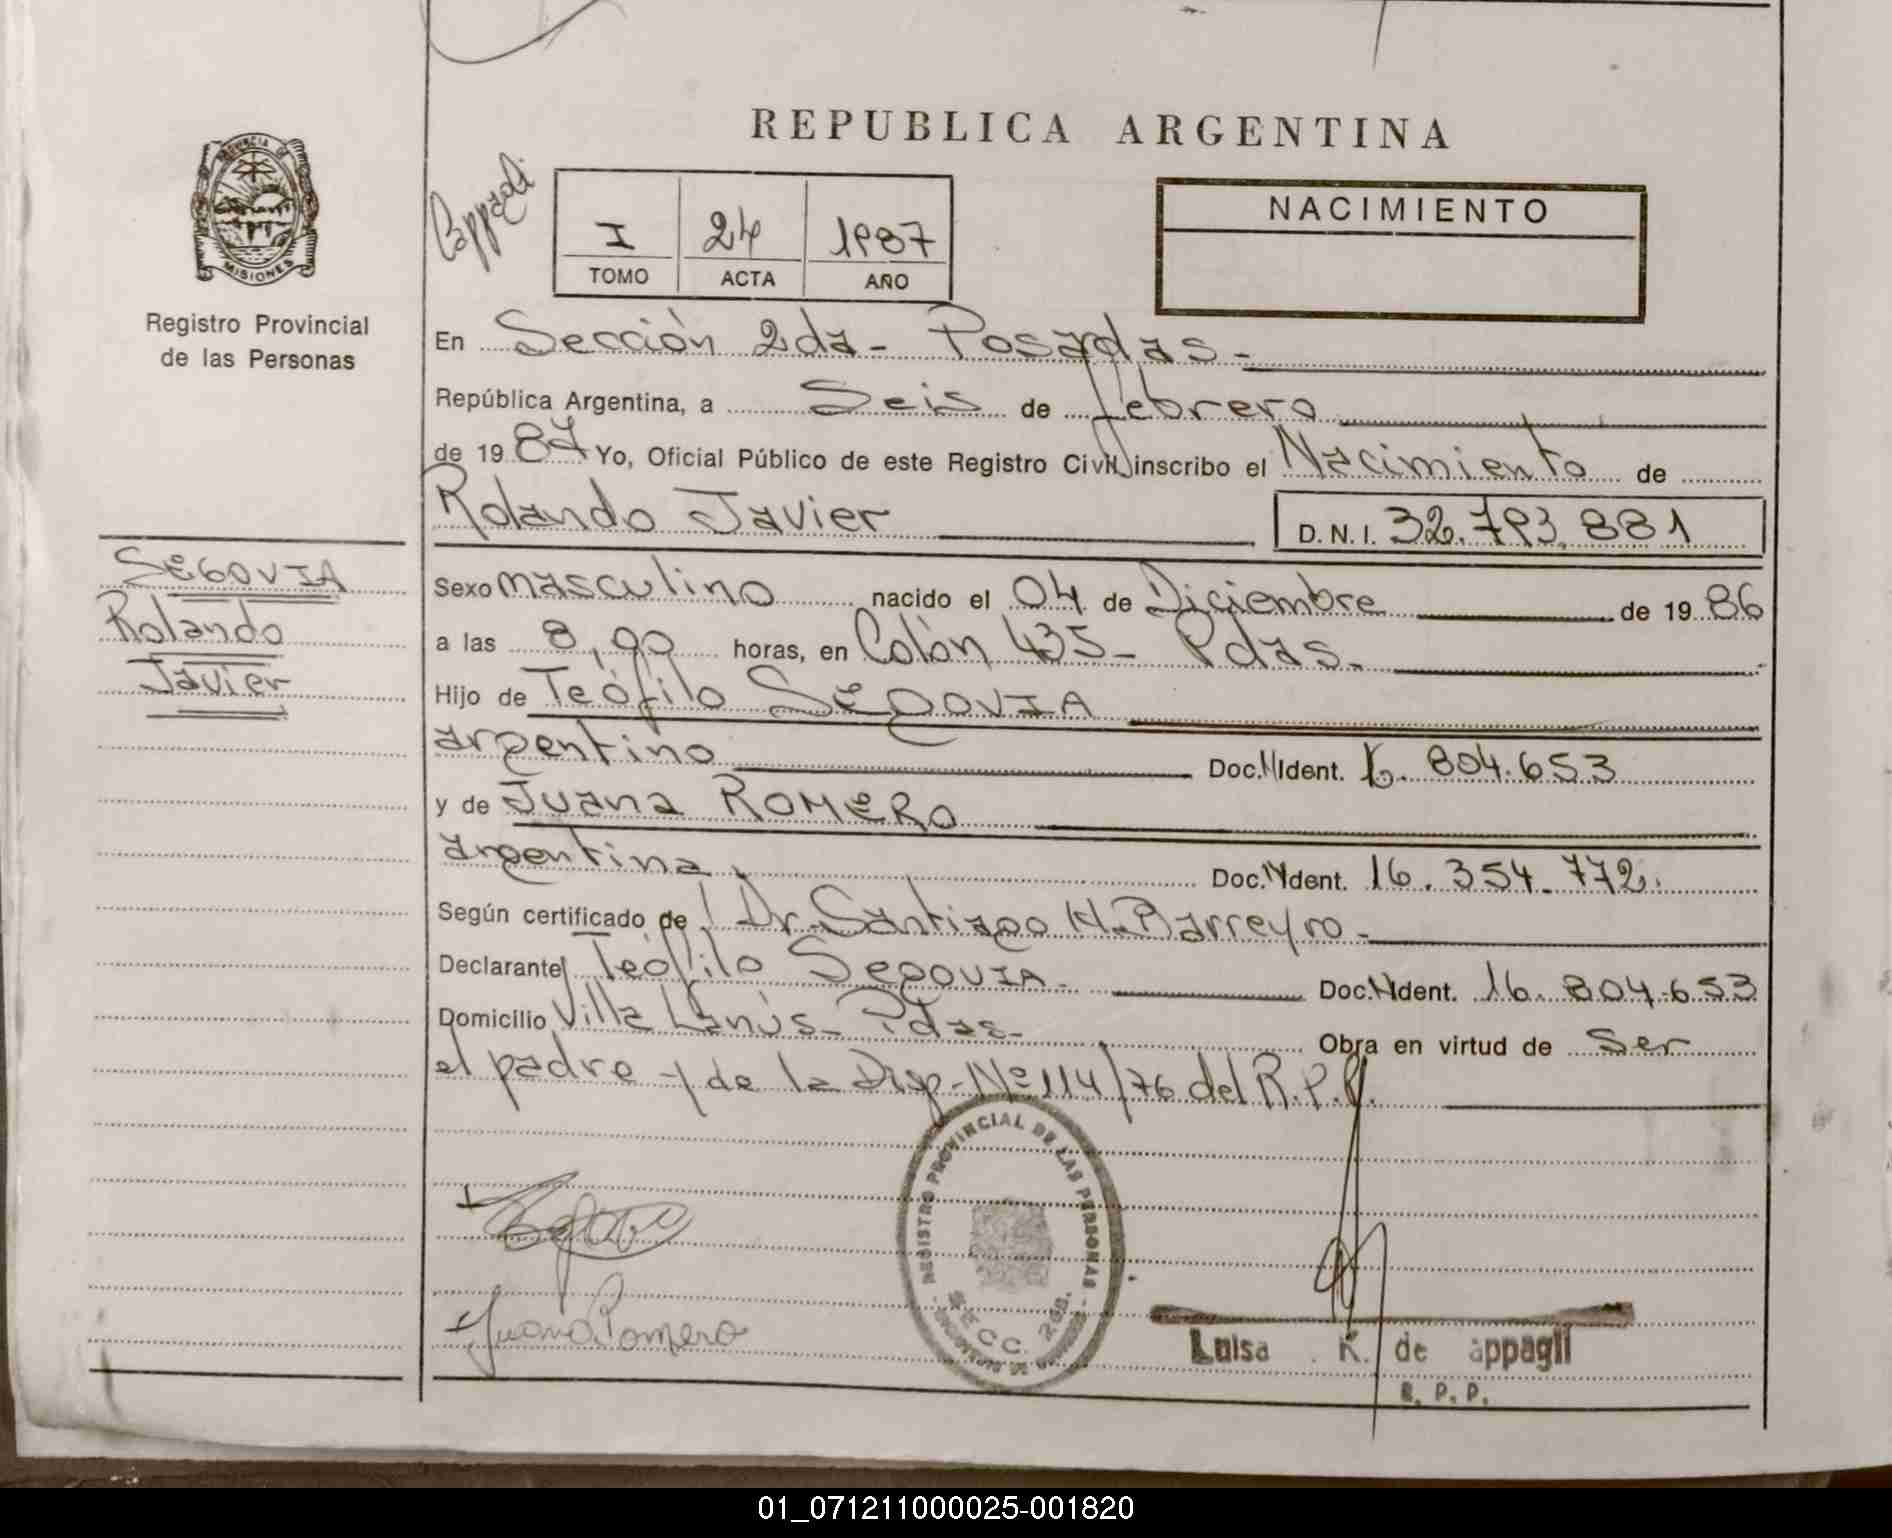 REPUBLICA ARGENTINA
PROVINCIA DE
MISIONES
Registro Provincial
de las Personas
I 24 1987
TOMO ACTA AÑO
NACIMIENTO
En Sección 2da - Posadas -
República Argentina, a Seis de febrero
de 19 87 Yo, Oficial Público de este Registro Civil inscribo el Nacimiento de
Rolando Javier D.N.I. 32.793.881
SEGOVIA
Rolando
Javier
Sexo masculino nacido el 04 de Diciembre de 19 86
a las 8,00 horas, en Colón 435 - Pdas.
Hijo de Teófilo SEGOVIA
argentino Doc. Ident. 16. 804.653
y de Juana ROMERO
argentina Doc. Ident. 16. 354. 772.
Según certificado de Dr. Santiago H. Barreyro -
Declarante Teófilo SEGOVIA. Doc. Ident. 16. 804.653
Domicilio Villa Lanús - Pdas -
Obra en virtud de Ser
el padre y de la Disp. Nº 114/76 del R.P.P.
REGISTRO PROVINCIAL DE LAS PERSONAS
SECC. 2da.
Juana Romero
Luisa K. de appagli
R. P. P.
01_071211000025-001820